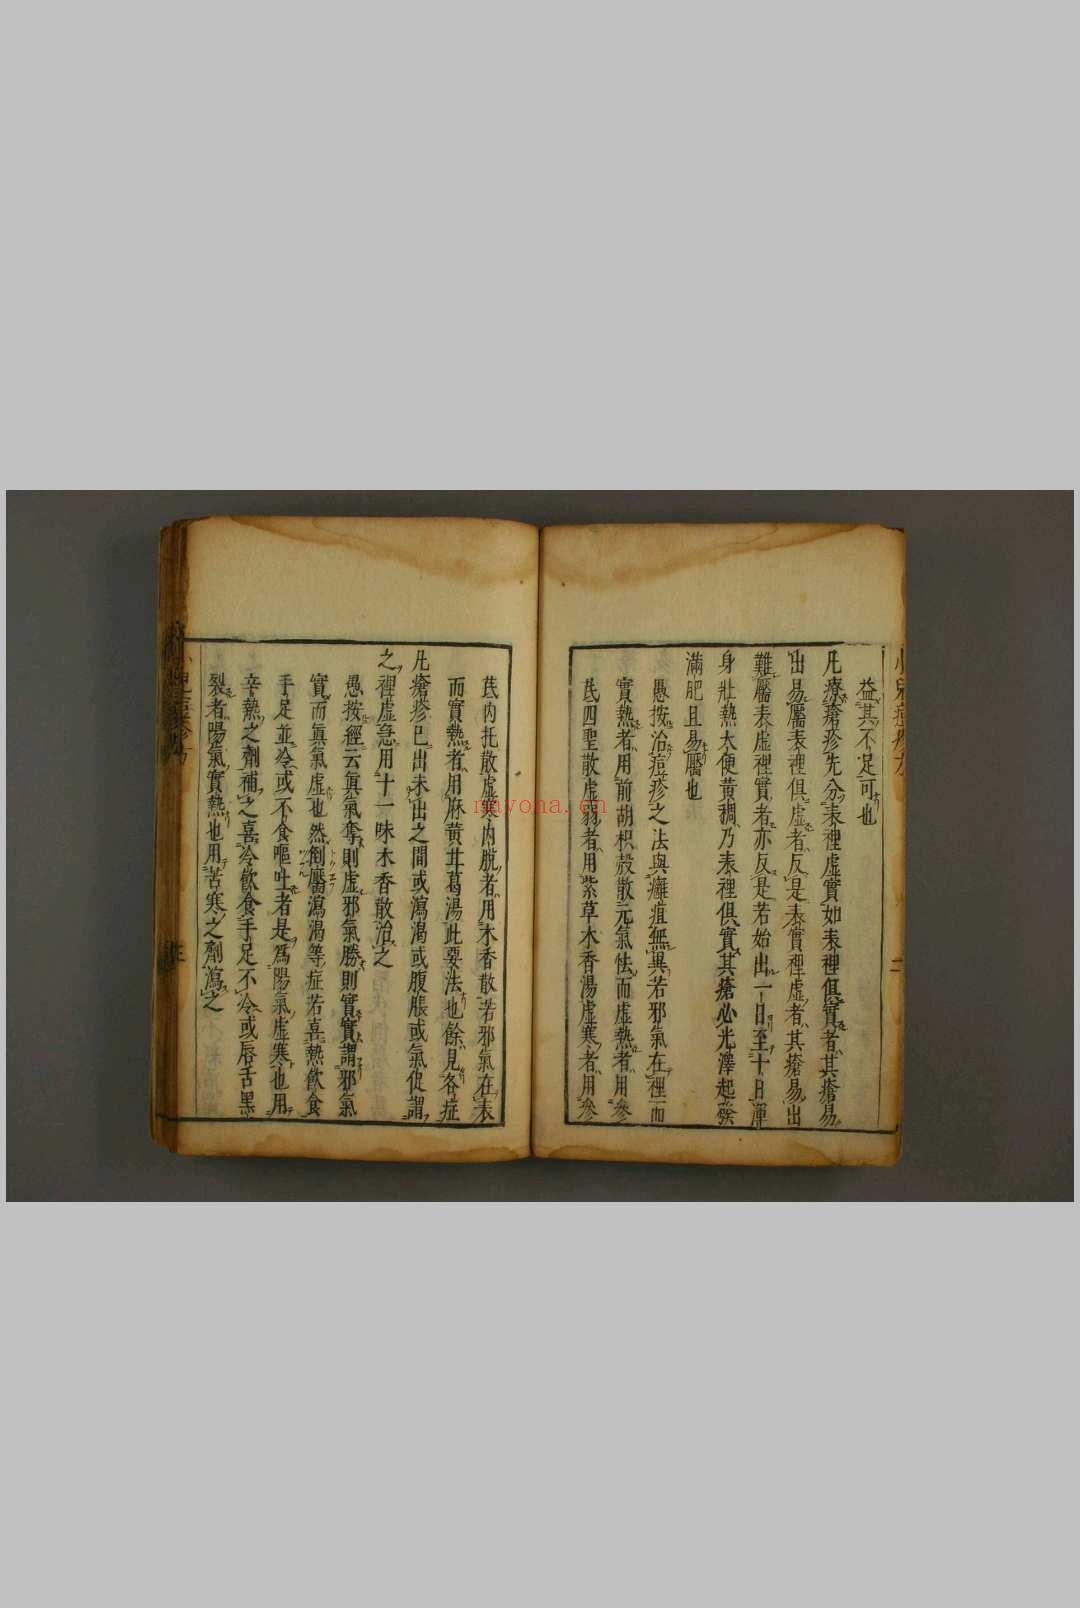 小兒痘疹方
益其不足可也
凡療瘡疹先分表裡虛實如表裡俱實者其瘡易
出易靨表裡俱虛者反是表實裡虛者其瘡易出
難靨表虛裡實者亦反是若始出一日至十日渾
身壯熱大便黃稠乃表裡俱實其瘡必光澤起發
滿肥且易靨也
愚按治痘疹之法與癰疽無異若邪氣在裡而
實熱者用前胡枳殼散元氣怯而虛熱者用參
芪四聖散虛弱者用紫草木香湯虛寒者用參
二
芪内托散虛寒内脫者用木香散若邪氣在表
而實熱者用麻黃甘葛湯此要法也餘見各症
凡瘡疹已出未出之間或瀉渴或腹脹或氣促謂
之裡虛急用十一味木香散治之
愚按經云眞氣奪則虛邪氣勝則實實謂邪氣
實而眞氣虛也然倒靨瀉渴等症若喜熱飲食
手足並冷或不食嘔吐者是爲陽氣虛寒也用
辛熱之劑補之喜冷飲食手足不冷或唇舌黑
裂者陽氣實熱也用苦寒之劑瀉之
小兒痘疹方
三
nayona.cn